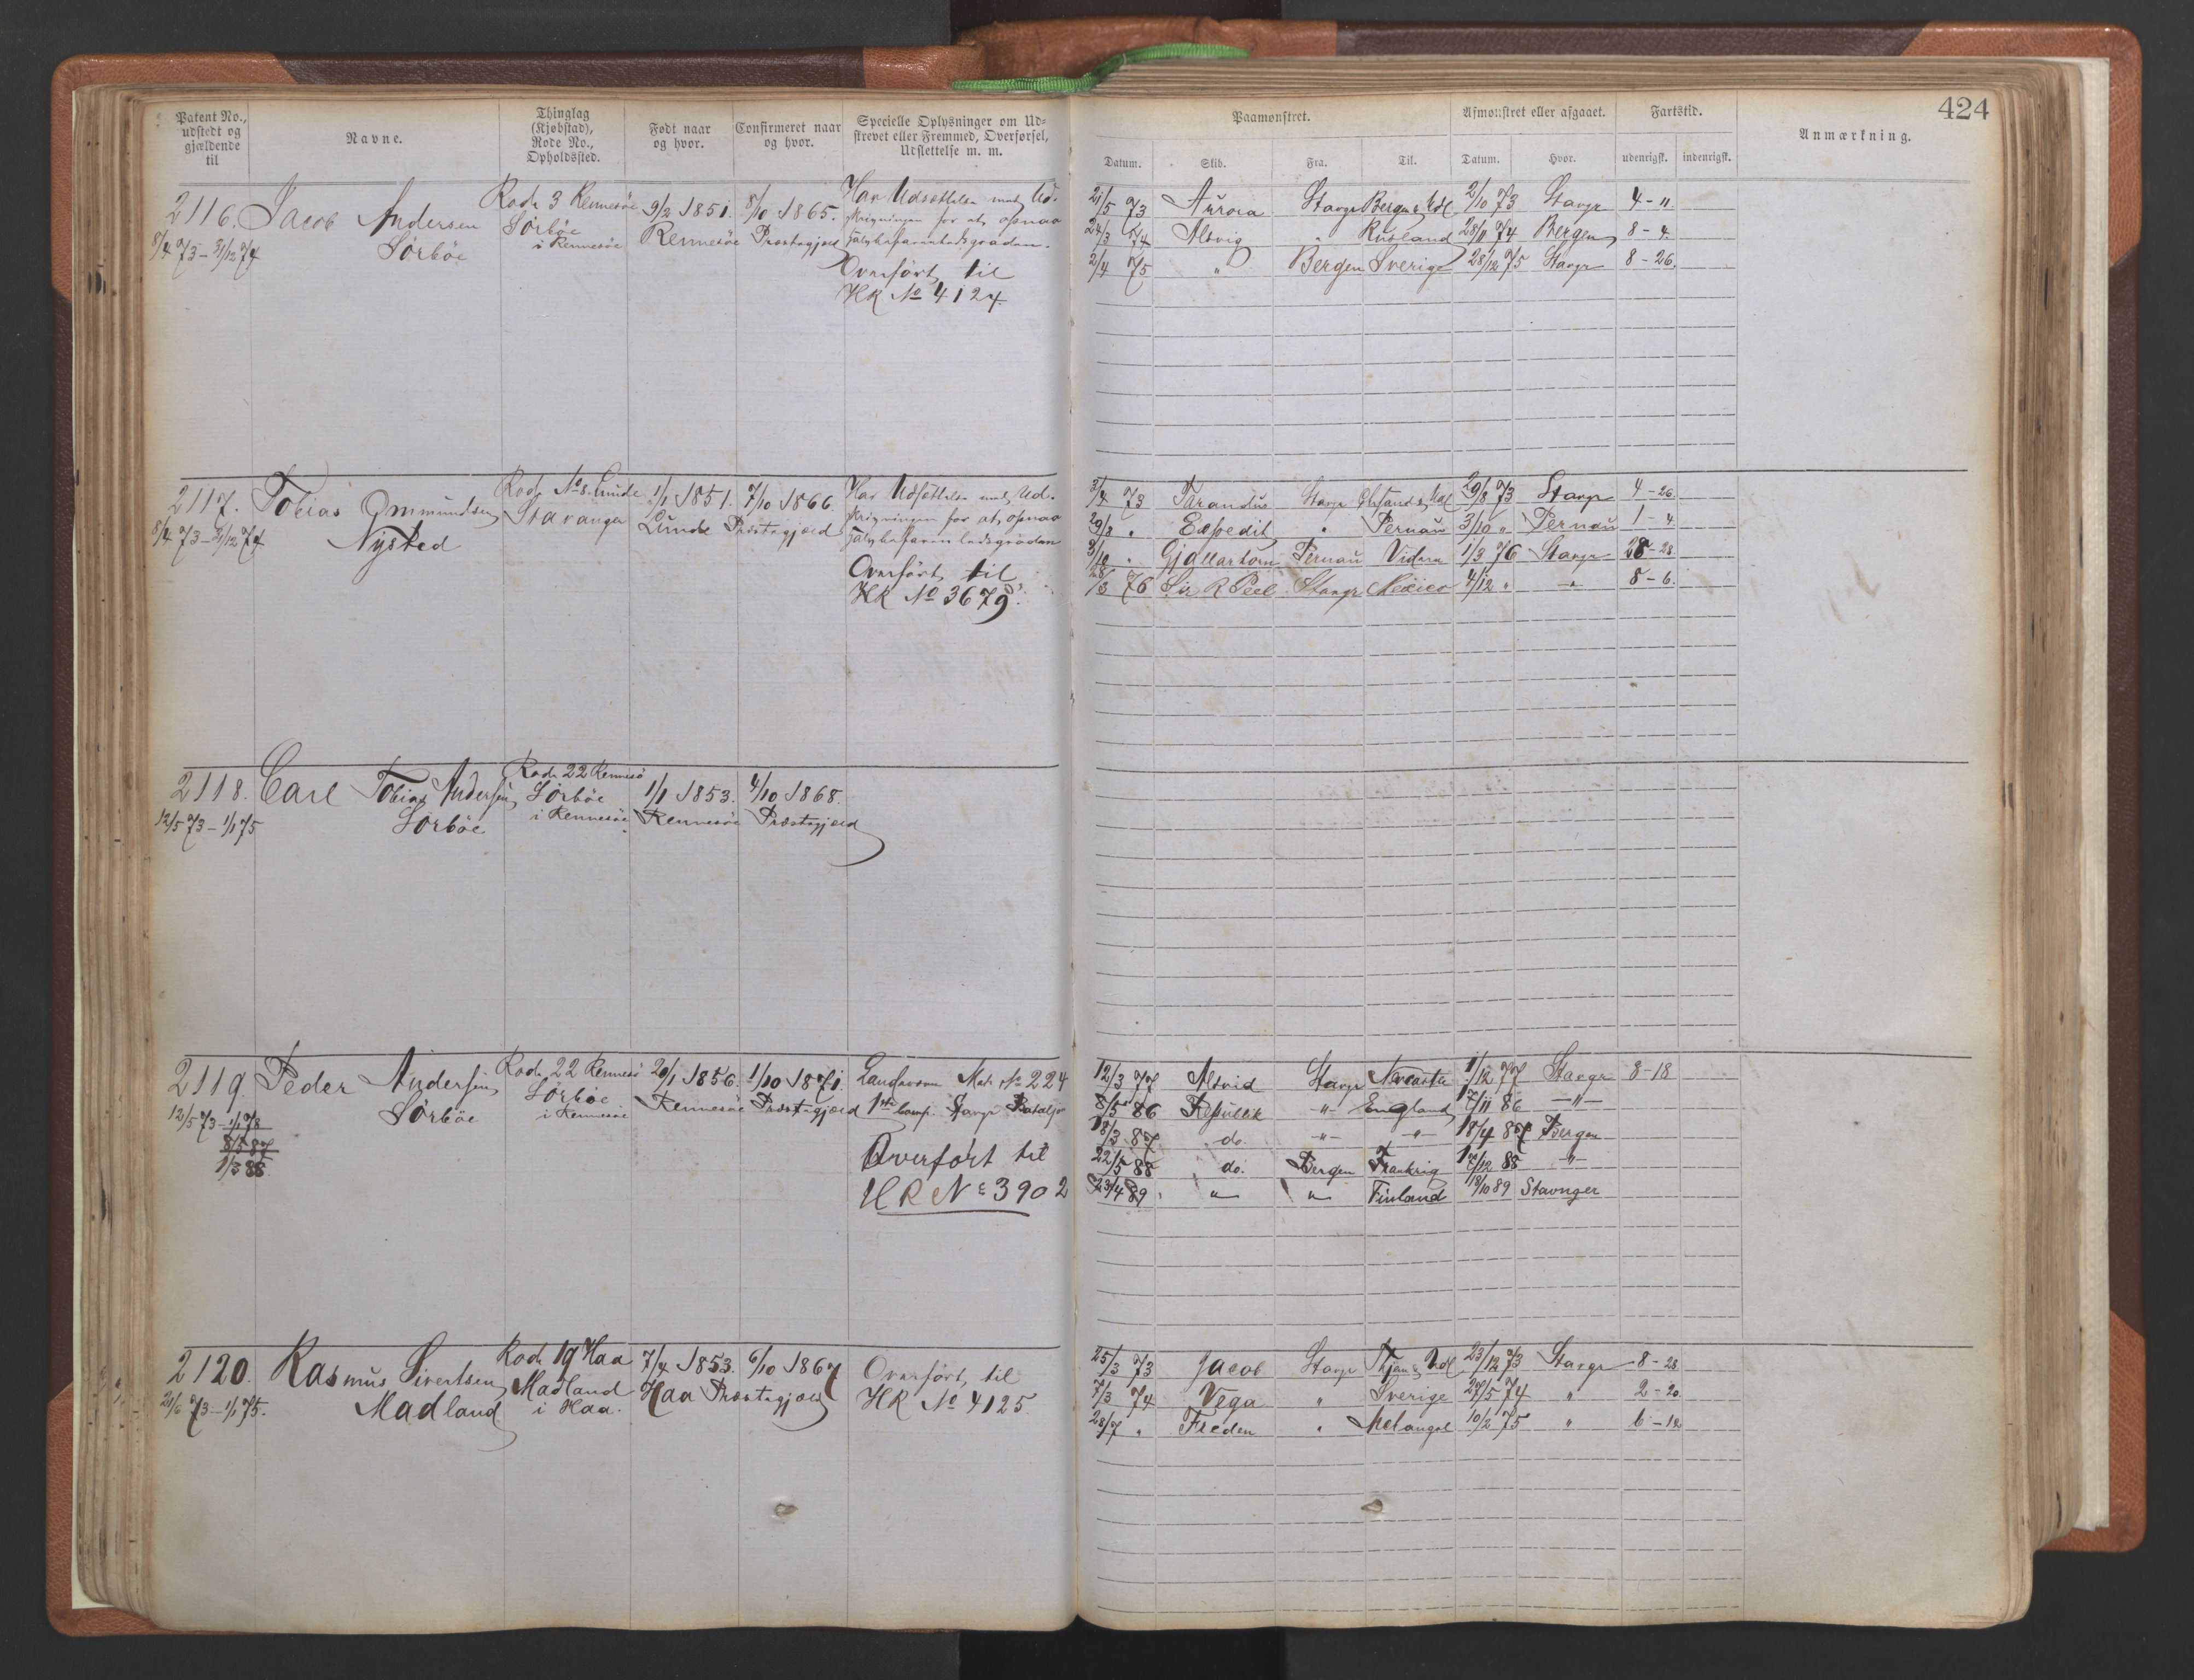 424
Patent No., udstedt og gjældende til
Navne.
Thinglag (Kjøbstad), Rode No., Opholdssted.
Født naar og hvor.
Confirmeret naar og hvor.
Specielle Oplysninger om Udskrevet eller Fremmed, Overførsel, Udslettelse m. m.
Paamønstret.
Afmønstret eller afgaaet.
Fartstid.
Anmærkning.
Datum. Skib. Fra. Til. Datum. Hvor. udenrigsk. indenrigsk.
2116. Jacob Andersen Rode 3 Rennesöe 9/2 1851. 8/10 1865. Har Udsættelse med Ud-
8/4 73 – 31/12 74 Sörböe Sörböe i Rennesöe Rennesöe Præstegjæld skrivningen for at opnaa
Overført til
HR No 4124
21/5 73 Aurora Stavgr Bergen & Udl 2/10 73 Stavgr 4 – 11.
24/3 74 Alsvig " Rusland 28/11 74 Bergen 8 – 4
2/4 75 " Bergen Sverige 28/12 75 Stavgr 8 – 26.
2117. Tobias Ommundsen Rode No 8. Lunde 1/1 1851. 7/10 1866. Har Udsættelse med Ud-
8/4 73 – 31/12 74 Nysted Stavanger Lunde Præstegjæld skrivningen for at opnaa
Overført til
HR No 3679.
3/4 73 Stavgr 29/8 73 Stavgr 4 – 26.
29/8 " Expedit " Pernau 3/10 " Pernau 1 – 4
3/10 " Gjallarhorn Pernau Videre 1/3 76 Stavgr 28 – 28
28/3 76 Sir R Peel Stavgr Mexico 4/12 " – " 8 – 6.
2118. Carl Tobias Andersen Rode 22 Rennesö 1/1 1853. 4/10 1868.
12/5 73 – 1/1 75 Sörböe Sörböe i Rennesöe Rennesöe Præstegjæld
2119 Peder Andersen Rode 22 Rennesö 20/1 1856. 1/10 1871. Landværn Mat. No 224
12/5 73 – 1/1 78 Sörböe Sörböe i Rennesöe Rennesöe Præstegjæld 1ste Comp. Stavgr Bataljon
8/5 87
1/3 88
Overført til
HR No 3902
12/3 77 Alsvid Stavgr 1/12 77 Stavgr 8 – 18
8/5 86 Republik – " – England 17/11 86 – " –
18/3 87 do. – " – – " – 18/4 87 Bergen
22/5 88 do. Bergen Frankrig 17/12 88 – " –
23/4 89 " " Finland 18/10 89 Stavnger
2120. Rasmus Sivertsen Rode 19 Haa 7/4 1853. 6/10 1867 Overført til
20/6 73 – 1/1 75. Madland Madland i Haa. Haa Præstegjæld HR No 4125
25/3 73 Jacob Stavgr 23/12 73 Stavgr 8 – 28
7/3 74 Vega " Sverige 27/5 74 " 2 – 20
28/7 " Freden " 10/2 75 " 6 – 12